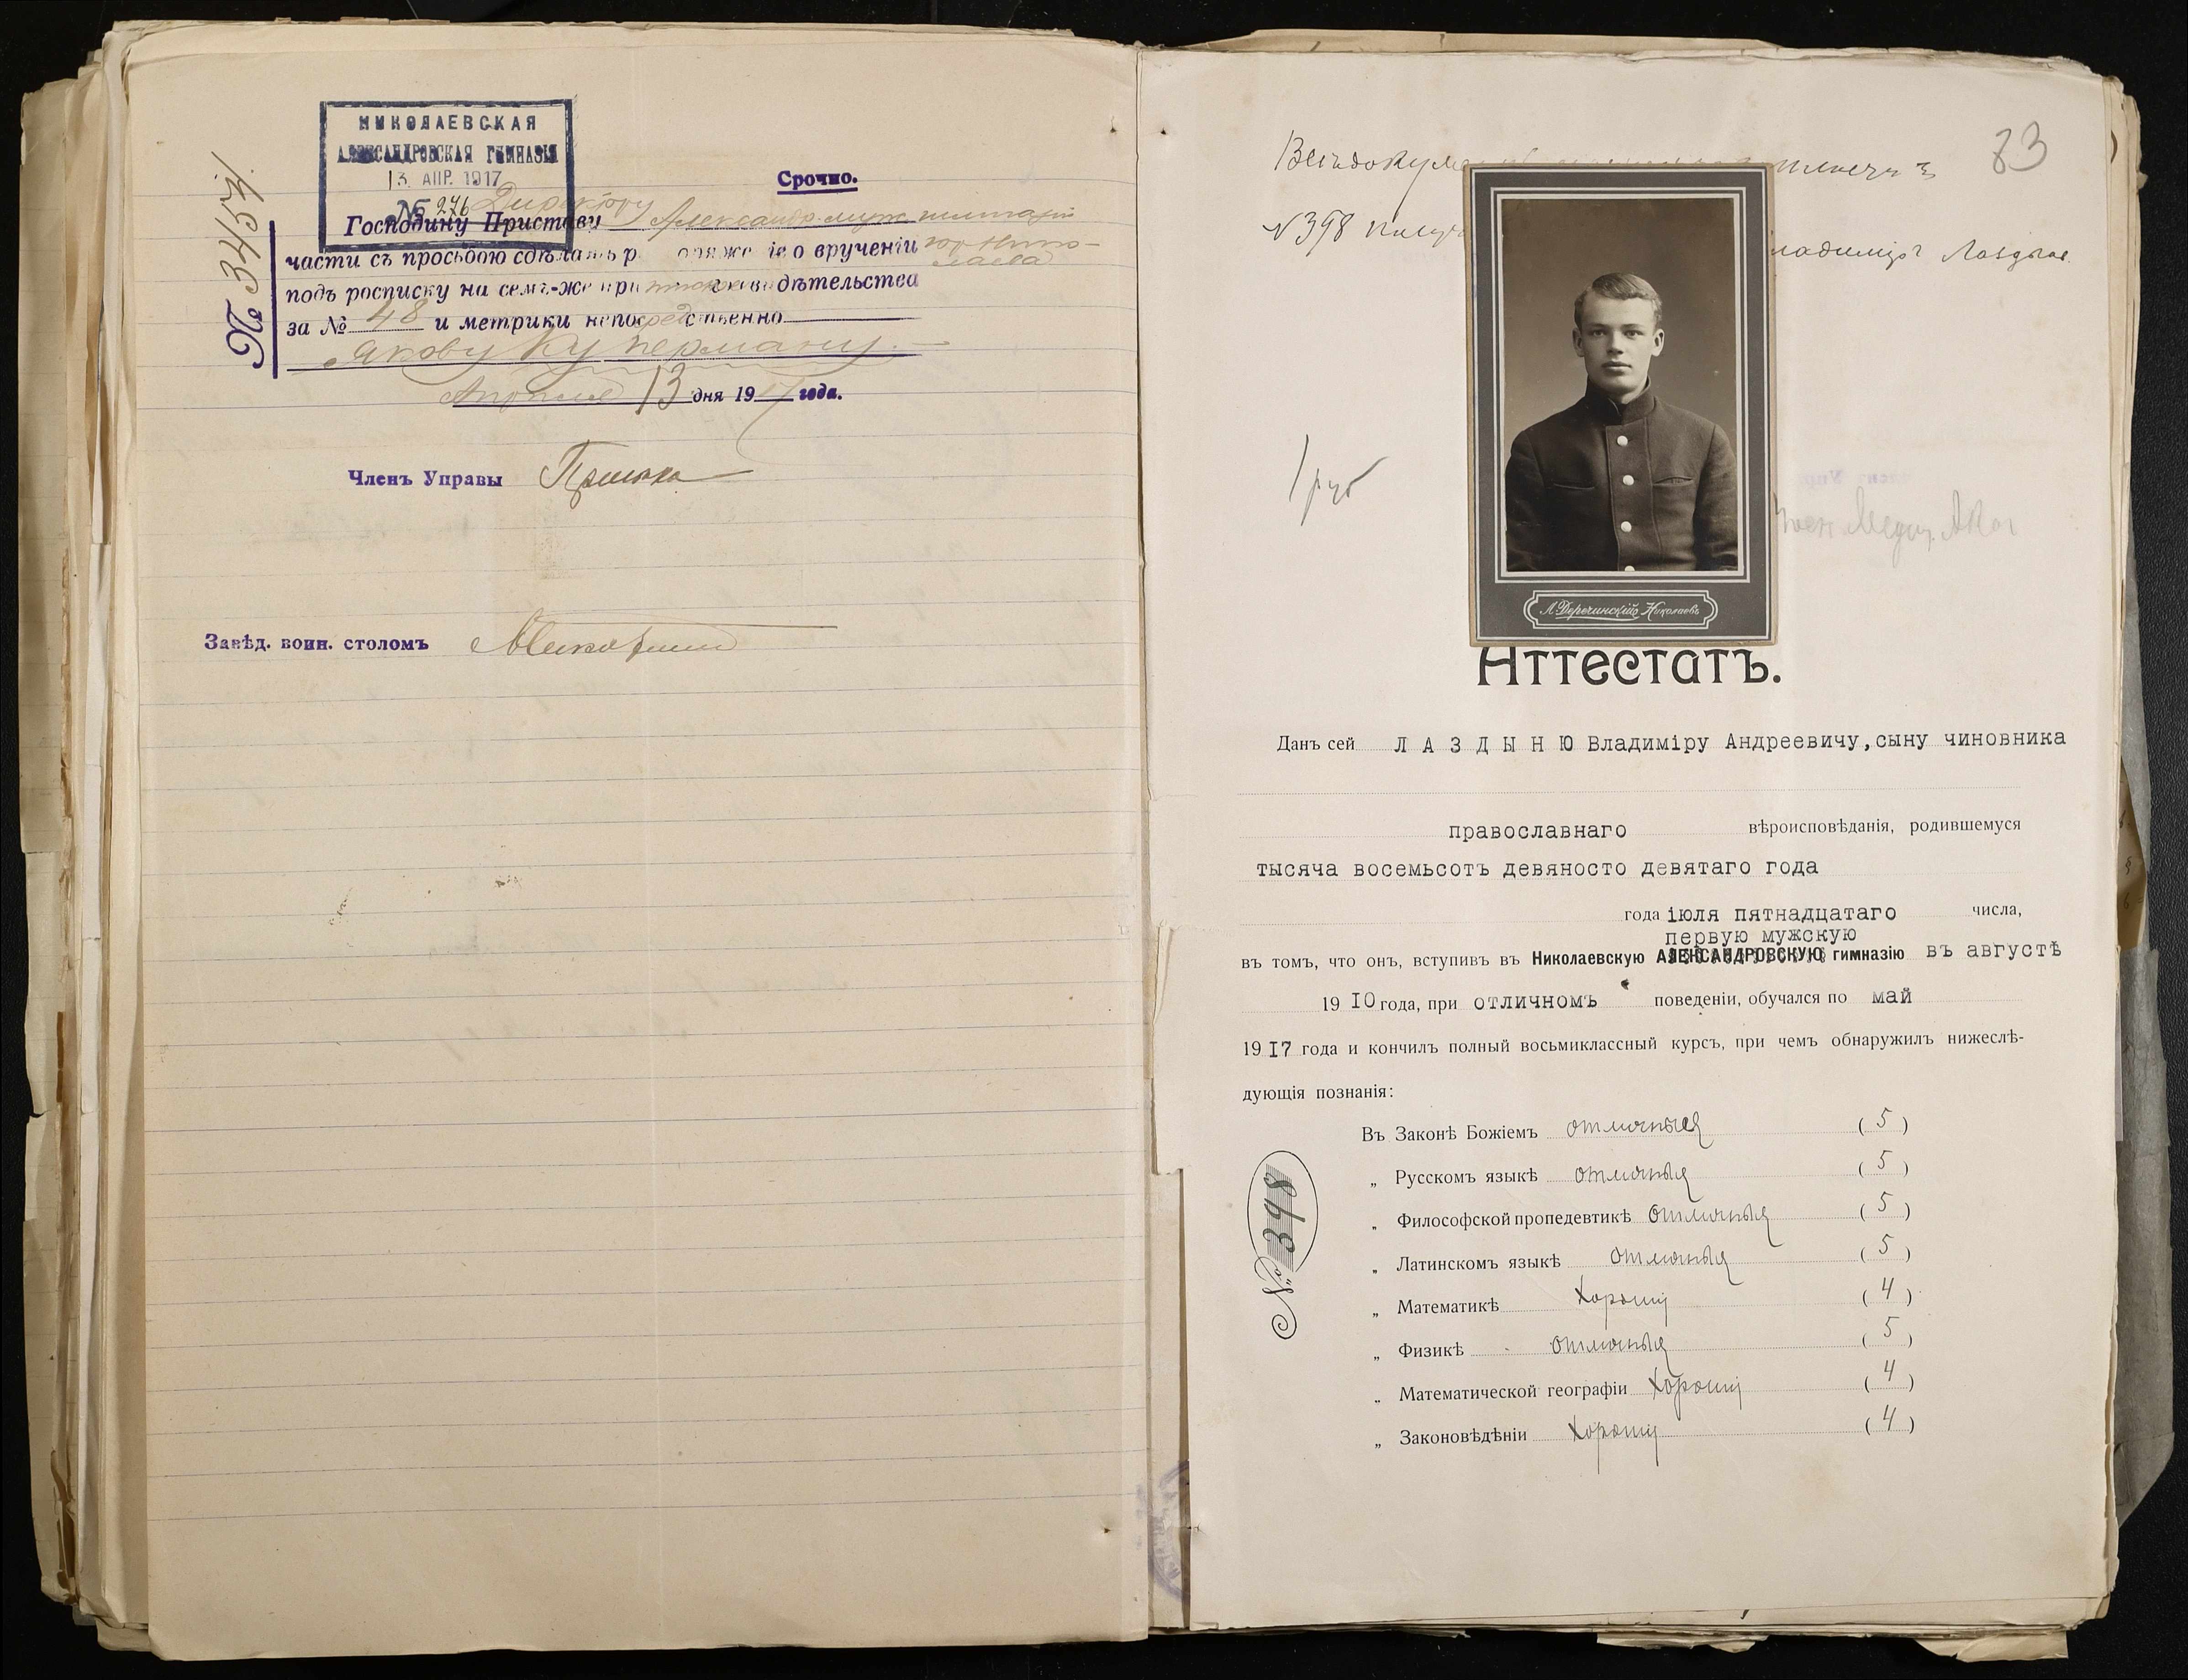 НИКОЛАЕВСКАЯ
АЛЕКСАНДРОВСКАЯ ГИМНАЗІЯ
13 АПР. 1917
№ 276
№ 3454
Срочно.
Директору
Господину Приставу Александр. муж. гимназіи
части съ просьбою сдѣлать распоряженіе о врученіи гор. Нико-
лаева
подъ росписку на семъ-же приписного свидѣтельства
за № 48 и метрики непосредственно
Якову Куперману.
Апрѣля 13 дня 1917 года.
Членъ Управы
Завѣд. воин. столомъ
83
Всѣ докум
№ 398 получ
ладиміръ Лаздын
1 руб
Воен. Медиц. Ака
Л. Деречинскій Николаевъ
Аттестатъ.
Данъ сей ЛАЗДЫНЮ Владиміру Андреевичу, сыну чиновника
православнаго вѣроисповѣданія, родившемуся
тысяча восемьсотъ девяносто девятаго года
года іюля пятнадцатаго числа,
первую мужскую
въ томъ, что онъ, вступивъ въ Николаевскую АЛЕКСАНДРОВСКУЮ гимназію въ августѣ
19 10 года, при отличномъ поведеніи, обучался по май
19 17 года и кончилъ полный восьмиклассный курсъ, при чемъ обнаружилъ нижеслѣ-
дующія познанія:
Въ Законѣ Божіемъ отличныя (5)
„ Русскомъ языкѣ отличныя (5)
„ Философской пропедевтикѣ отличныя (5)
„ Латинскомъ языкѣ отличныя (5)
„ Математикѣ хорошія (4)
„ Физикѣ отличныя (5)
„ Математической географіи хорошія (4)
„ Законовѣдѣніи хорошія (4)
№ 398